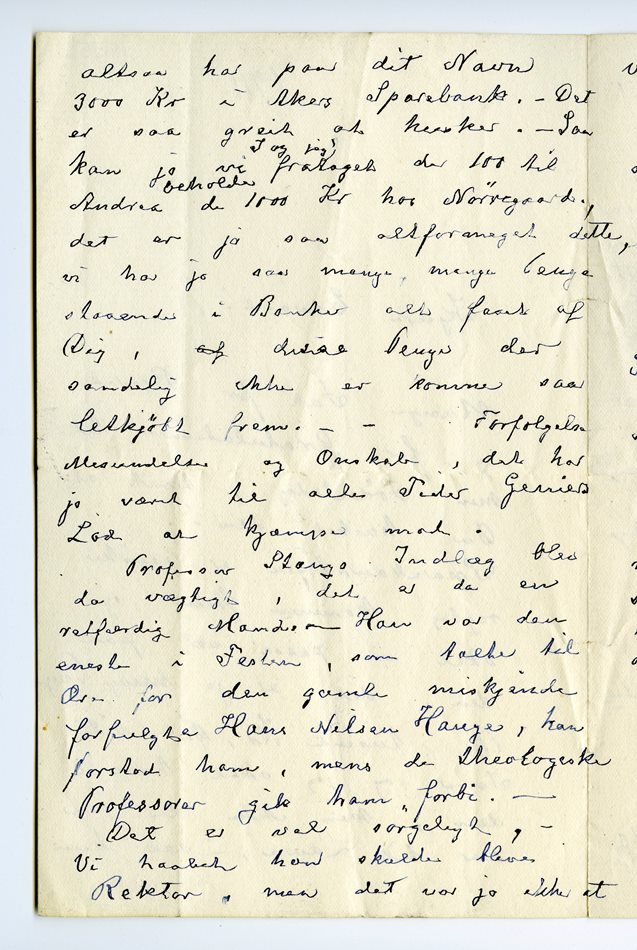 altsaa har paa dit Navn
3000 Kr i Akers Sparebank. – Det
er saa greit at huske. – Saa
kan jo vi I og jeg! frataget de 100 til
beholde
Andrea de 1000 Kr hos Nörregaard.,
det er jo saa altformeget dette,
vi har jo saa mange, mange Penge
staaende i Banker alt faaet af
Dig, af disse Penge der
sandelig ikke er komne saa
letkjøbt frem. – – Forfølgelse
Misundelse og Ondskab, det har
jo været til alle Tider Geniers
Lod at kjæmpe mod.
Professor Stangs Indlæg blev
da vægtigt, det er da en
retfærdig Mand – Han var den
eneste i Festen, som talte til
Ære for den gamle miskjendte
forfulgte Hans Nilsen Hauge, han
forstod ham, mens de theologiske
Professorer gik ham forbi. –
Det er vel sørgeligt, –
Vi haabet han skulde bleve
Rektor, men det var jo ikke at